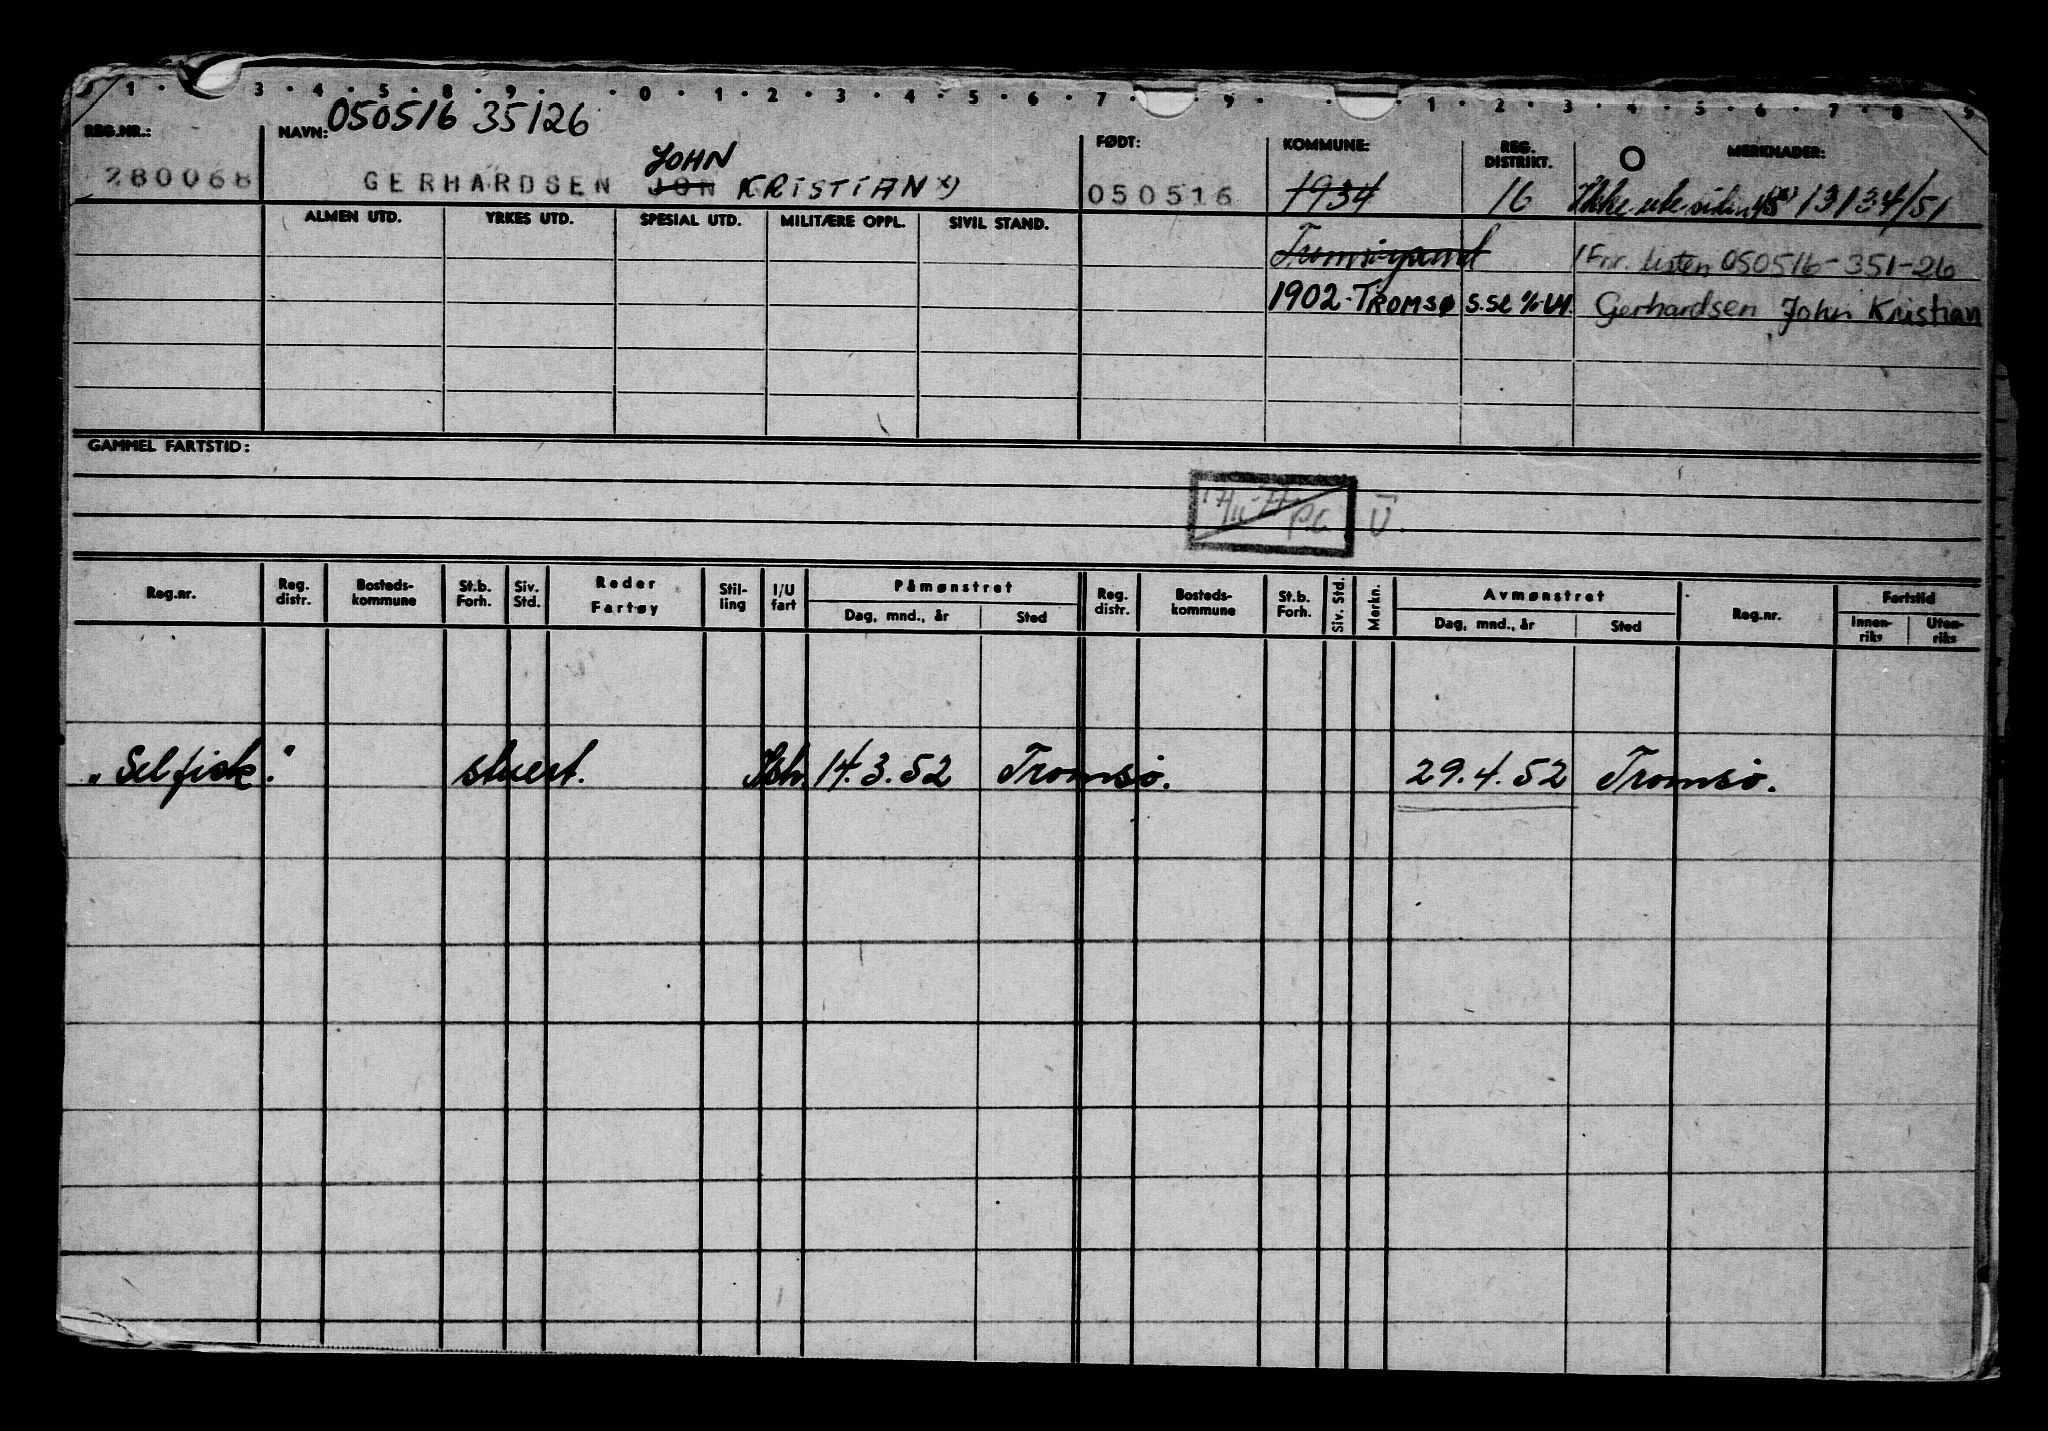 1 · 3 · 4 · 5 · 8 · 9 · · 0 · 1 · 2 · 3 · 4 · 5 · 6 · 7 · 9 · · 1 · 2 · 3 · 4 · 5 · 6 · 7 · 8 9
050516 35126
REG.NR.: NAVN: FØDT: KOMMUNE: REG. DISTRIKT. MERKNADER:
JOHN
280068 GERHARDSEN JON KRISTIAN x) 050516 1934 16 Ikke ute siden 13134/51
ALMEN UTD. YRKES UTD. SPESIAL UTD. MILITÆRE OPPL. SIVIL STAND.
Tromsøysund Fnr. listen 050516-351-26
1902-TROMSØ S.SL Gerhardsen John Kristian
GAMMEL FARTSTID:
U
Reg.nr. Reg. distr. Bosteds-kommune St.b. Forh. Siv. Std. Reder Fartøy Stil-ling I/U fart Påmønstret Reg. distr. Bosteds-kommune St.b. Forh. Siv. Std. Merkn. Avmønstret Reg.nr. Fartstid
Dag, mnd., år Sted Dag, mnd., år Sted Innen-riks Uten-riks
"Selfisk." stuert. Ish. 14.3.52 Tromsø. 29.4.52 Tromsø.